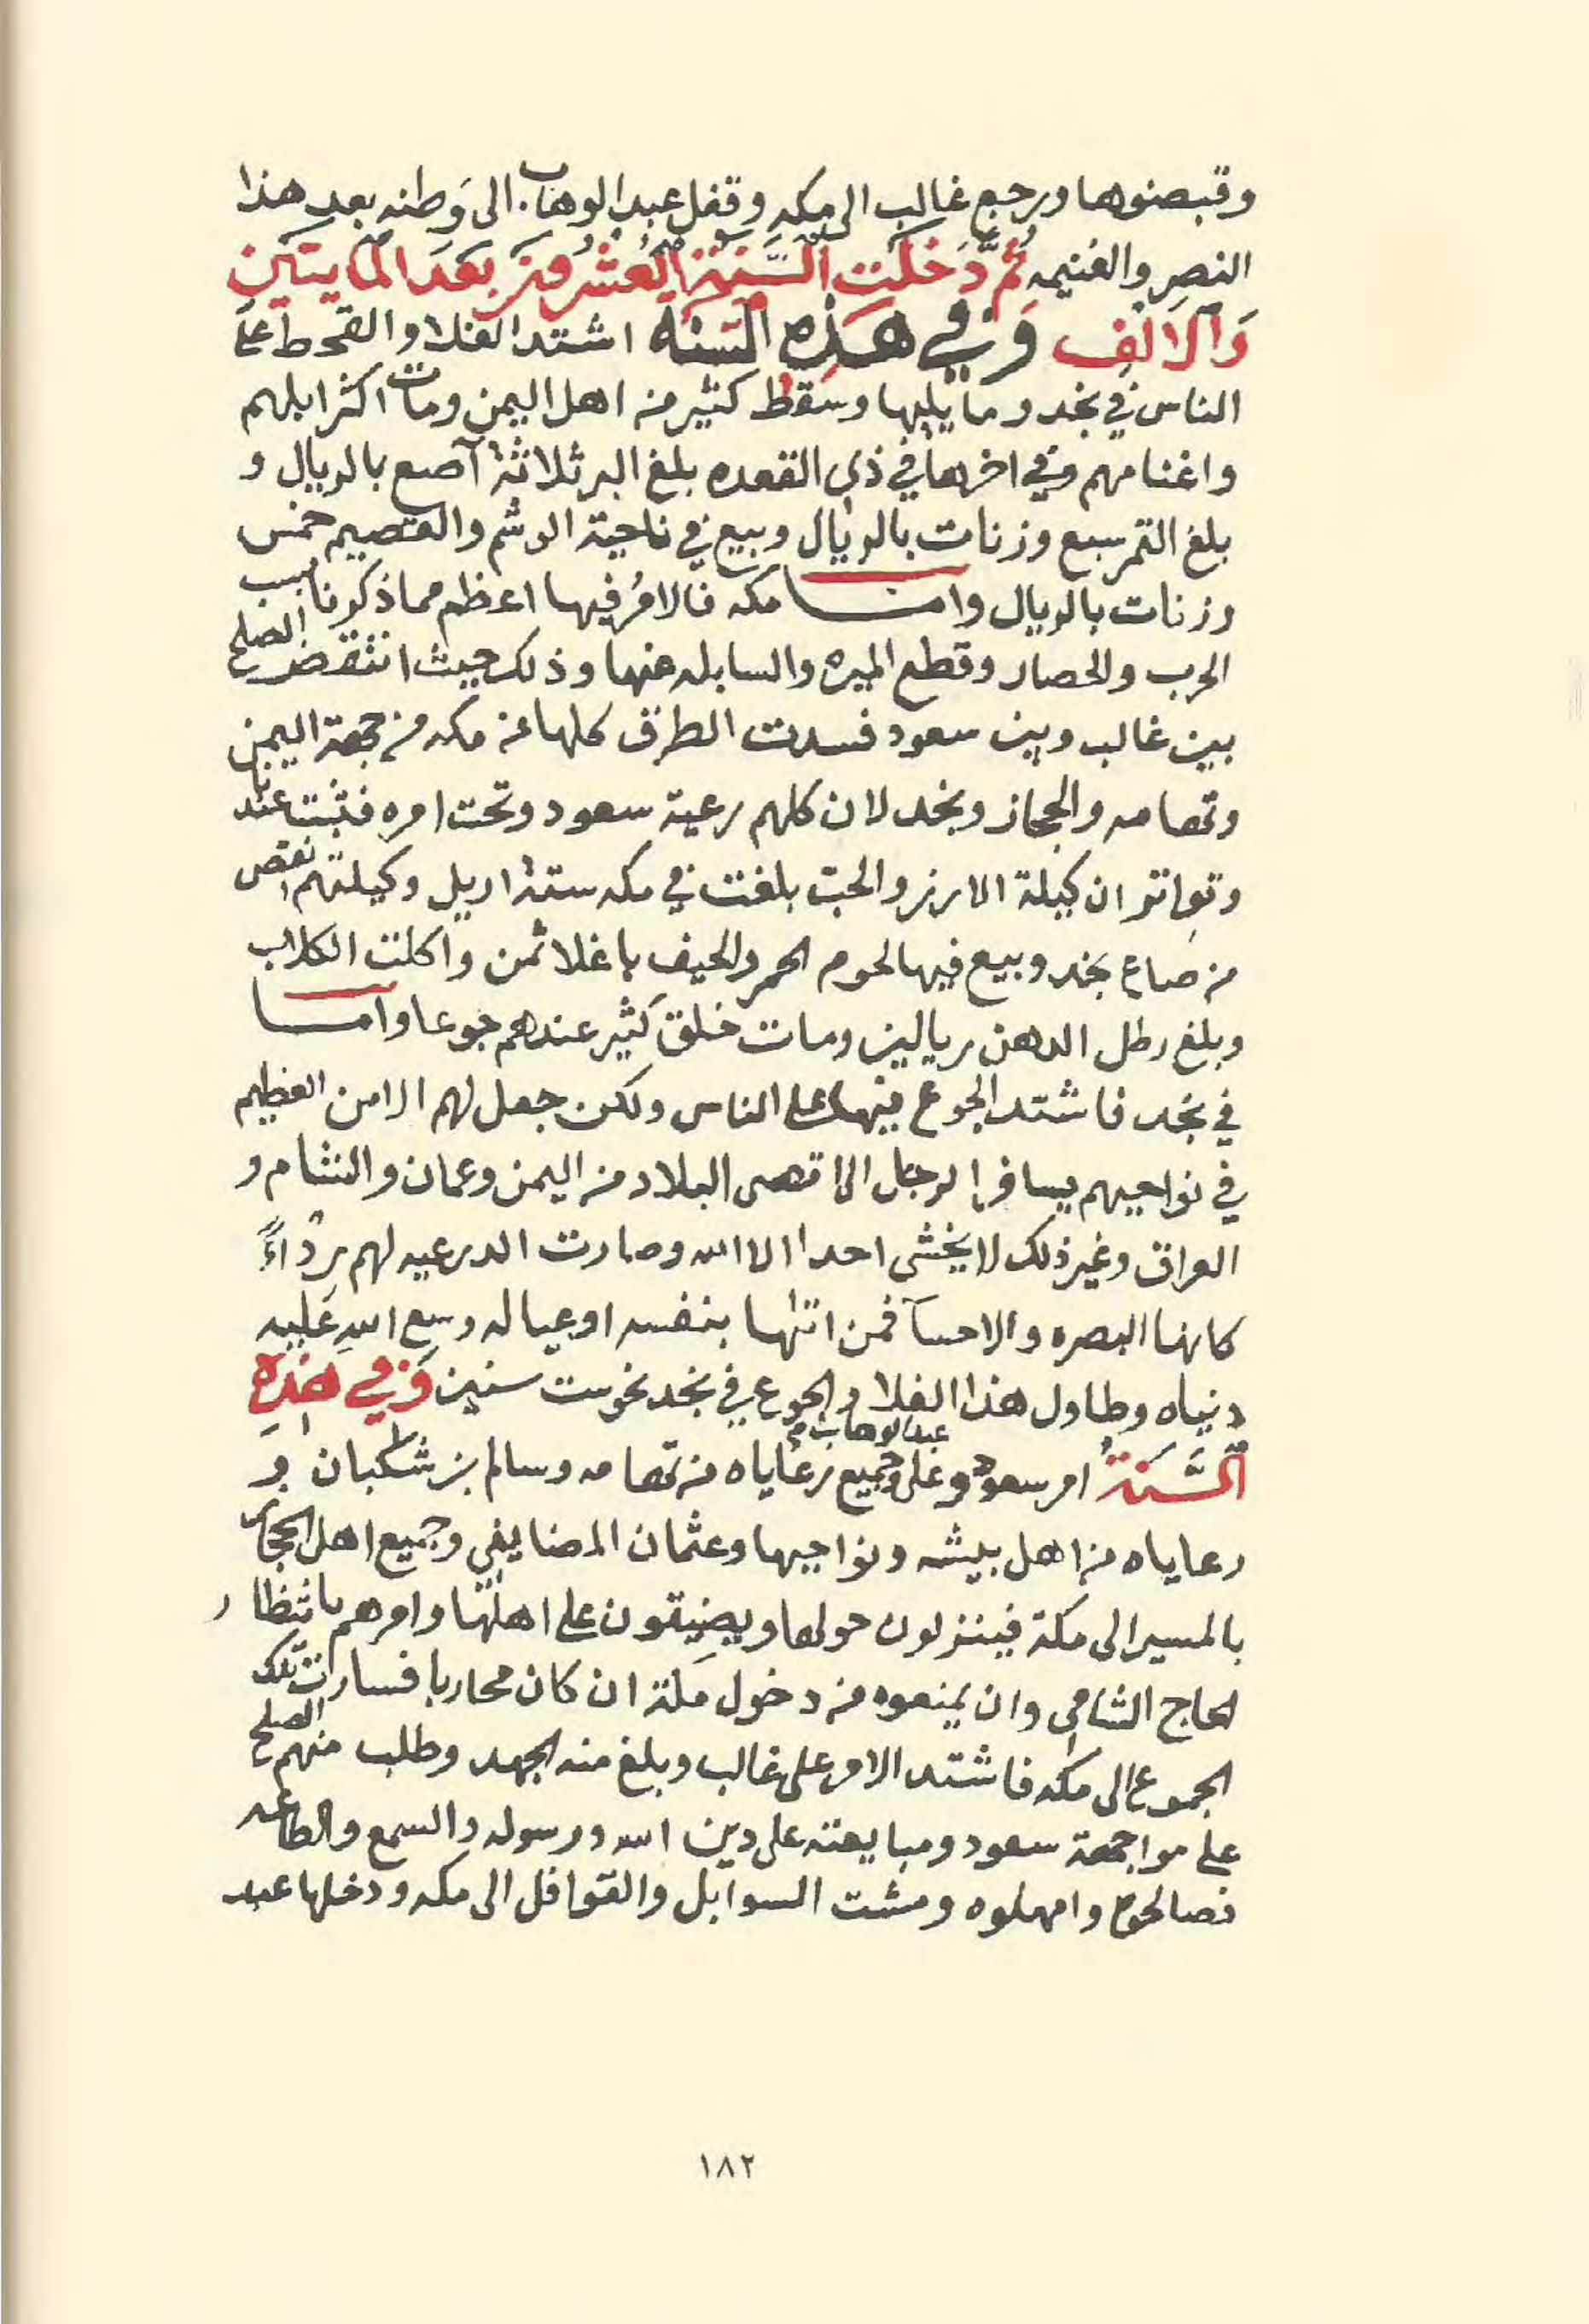 وقبضوها ورجع غالب الى مكه وقفل عبد الوهاب الى وَطنه بعد هذا
النصر والغنيمه ثُمَّ دَخَلَت السَّنَة العشرون بَعدَ المَايتَين
وَالالف وَفي هَذِه السَنَة اشتد الغلا والقحط على
الناس في نجد وما يليها وسقط كثير من اهل اليمن ومات اكثر ابلهم
واغنامهم وفي اخرها في ذي القعده بلغ البر ثلاثة آصع بالريال و
بلغ التمر سبع وزنات بالريال وبيع في ناحية الوشم والقصيم خمس
وزنات بالريال واما مكه فالامرُ فيها اعظم مما ذكرنا بسبب
الحرب والحصار وقطع الميره والسابله عنها وذلك حيث انتقض الصلح
بين غالب وبين سعود فسدت الطرق كلها عن مكه من جهة اليمن
وتهامه والحجاز ونجد لان كلهم رعية سعود وتحت امره فثبت عندنا
وتواتر ان كيلة الارز والحب بلغت في مكه ستة اريل وكيلتهم انقص
من صاع نجد وبيع فيها لحوم الحمر والجيف باغلا ثمن واكلت الكلاب
وبلغ رطل الدهن ريالين ومات خلق كَثير عندهم جوعا واما
في نجد فاشتد الجوع فيها على الناس ولكن جعل لهم الامن العظيم
في نواحيهم يسافر الرجل الى اقصى البلاد من اليمن وعمان والشام و
العراق وغير ذلك لا يخشى احدا الا الله وصارت الدرعيه لهم رِدْاءً
كانها البصره والاحسآ فمن اتاها بنفسه او عياله وسع الله عَليه
دنياه وطاول هذا الغلا والجوع في نجد نحو ست سنين وَفي هَذِهِ
السَّنَةُ امر سعود عبد الوهاب وجميع رعاياه من تهامه وسالم بن شكبان و
رعاياه من اهل بيشه ونواحيها وعثمان المضايفي وجميع اهل الحجاز
بالمسير الى مكة فينزلون حولها ويضيقون على اهلها وامرهم بانتظار
الحاج الشامي وان يمنعوه من دخول مكة ان كان محاربا فسارت تلك
الجموع الى مكه فاشتد الامر على غالب وبلغ منه الجهد وطلب منهم الصلح
على مواجهة سعود ومبايعته على دين الله ورسوله والسمع والطاعه
فصالحوه وامهلوه ومشت السوابل والقوافل الى مكه ودخلها عبد
١٨٢